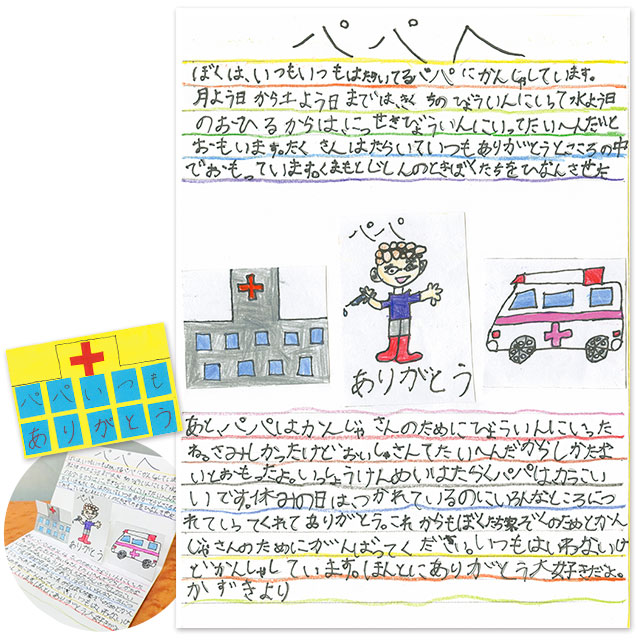 パパへ
ぼくは、いつもいつもはたらいてるパパにかんしゃしています。
月よう日から土よう日までは、きくちのびょういんにいって水よう日
のおひるからは、にっせきびょういんにいってたいへんだと
おもいます。たくさんはたらいていつもありがとうとこころの中
でおもっています。くまもとじしんのときぼくたちをひなんさせた
パパ
ありがとう
あと、パパはかんじゃさんのためにびょういんにいった
ね。さみしかったけどおいしゃさんてたいへんだからしかたな
いとおもったよ。いっしょうけんめいはたらくパパはかっこい
いです。休みの日はつかれているのにいろんなところにつ
れていってくれてありがとう。これからもぼくたち家ぞくのためとかん
じゃさんのためにがんばってください。いつもはいわないけ
どかんしゃしています。ほんとにありがとう大好きだよ。
かずきより
パパいつも
ありがとう